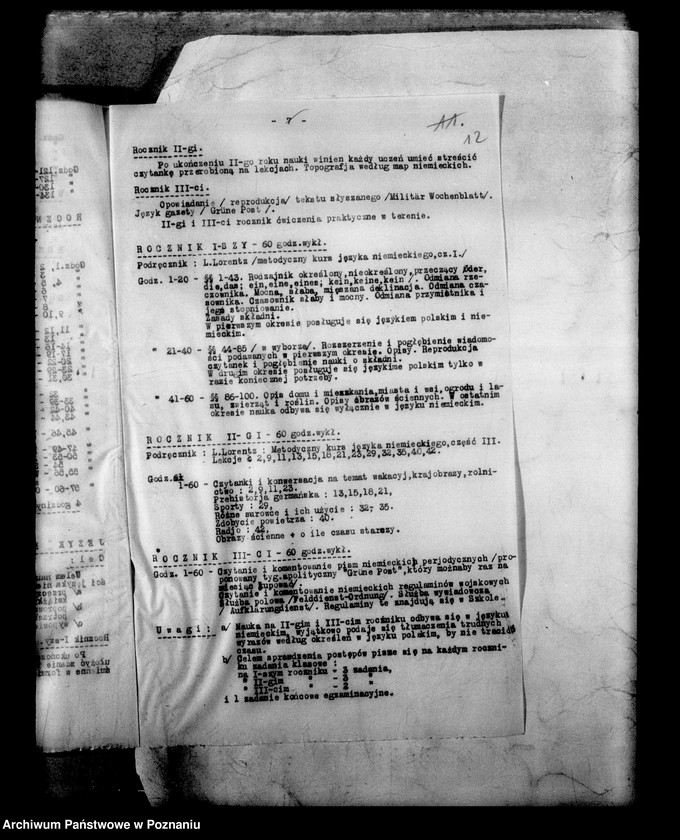 - 7 -
AA.
12
Rocznik II-gi.
Po ukończeniu II-go roku nauki winien każdy uczeń umieć streścić
czytankę przerobioną na lekcjach. Topografja według map niemieckich.
Rocznik III-ci.
Opowiadanie / reprodukcja/ tekstu słyszanego /Militär Wochenblatt/.
Język gazety / Grüne Post /.
II-gi i III-ci rocznik ćwiczenia praktyczne w terenie.
ROCZNIK I-SZY - 60 godz.wykł.
Podręcznik : L.Lorentz /metodyczny kurs języka niemieckiego,cz.I./
Godz. 1-20 - §§ 1-43. Rodzajnik określony,nieokreślony,przeczący /der,
die,das; ein,eine,eines; kein,keine,kein /. Odmiana rze-
czownika. Mocna, słaba, mięszana deklinacja. Odmiana cza-
sownika. Czasownik słaby i mocny. Odmiana przymiotnika i
jego stopniowanie.
Zasady składni.
W pierwszym okresie posługuje się językiem polskim i nie-
mieckim.
" 21-40 - §§ 44-85 / w wyborze/. Rozszerzenie i pogłębienie wiadomo-
ści podawanych w pierwszym okresie. Opisy. Reprodukcja
czytanek i pogłębienie nauki o składni.
W drugim okresie posługuje się językime polskim tylko w
razie koniecznej potrzeby.
" 41-60 - §§ 86-100. Opis domu i mieszkania,miasta i wsi,ogrodu i la-
su, zwierząt i roślin. Opisy obrazów ściennych. W ostatnim
okresie nauka odbywa się wyłącznie w języku niemieckim.
ROCZNIK II-GI - 60 godz.wykł.
Podręcznik : L.Lorentz : Metodyczny kurs języka niemieckiego,część III.
Lekcje : 2,9,11,13,15,18,21,23,29,32,35,40,42.
Godz.
1-60 - Czytanki i konwersacja na temat wakacyj,krajobrazy,rolni-
ctwo : 2,9,11,23.
Prehistorja germańska : 13,15,18,21,
Sporty : 29,
Różne surowce i ich użycie : 32- 35.
Zdobycie powietrza : 40.
Radjo : 42,
Obrazy ścienne + o ile czasu starczy.
ROCZNIK III-CI - 60 godz.wykł.
Godz. 1-60 - Czytanie i komentowanie pism niemieckich perjodycznych /pro-
ponowany tyg.apolityczny "Grüne Post",który możnaby raz na
miesiąc kupować/.
Czytanie i komentowanie niemieckich regulaminów wojskowych
Służba polowa /Felddienst-Ordnung/. Służba wywiadowcza
/Aufklärungdienst/. Regulaminy te znajdują się w Szkole.
Uwagi : a/ Nauka na II-gim i III-cim roczniku odbywa się w języku
niemieckim, wyjątkowo podaje się tłumaczenia trudnych
wyrazów według określeń w języku polskim, by nie tracić
czasu.
b/ Celem sprawdzenia postępów pisze się na każdym roczni-
ku zadania klasowe :
na I-szym roczniku - 3 zadania,
" II-gim " - 3 "
" III-cim " - 2 "
i 1 zadanie końcowe egzaminacyjne.
Archiwum Państwowe w Poznaniu